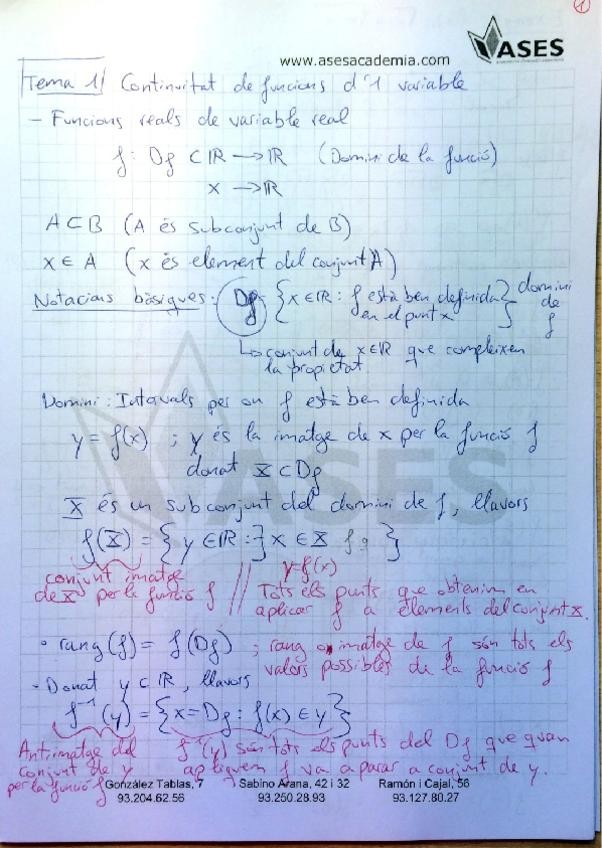 1
ASES
www.asesacademia.com
Tema 1 Continuitat de funcions d'1 variable
- Funcions reals de variable real
f: Df ⊂ ℝ → ℝ (Domini de la funció)
x → ℝ
A ⊂ B (A és subconjunt de B)
x ∈ A (x és element del conjunt A)
Notacions bàsiques: Df = {x ∈ ℝ : f està ben definida en el punt x} domini de f
↳ conjunt de x ∈ ℝ que compleixen
la propietat
Domini: Intervals per on f està ben definida
y = f(x) ; y és la imatge de x per la funció f
donat X ⊂ Df
X és un subconjunt del domini de f, llavors
f(X) = {y ∈ ℝ : ∃ x ∈ X }
y = f(x)
conjunt imatge
de X per la funció f // Tots els punts que obtenim en
aplicar f a elements del conjunt X.
• rang(f) = f(Df) ; rang o imatge de f són tots els
valors possibles de la funció f
- Donat y ⊂ ℝ, llavors
f⁻¹(y) = {x = Df : f(x) ∈ y}
Antiimatge del
conjunt de y
per la funció f
f⁻¹(y) són tots els punts del Df que quan
apliquem f va a parar a conjunt de y.
González Tablas, 7 Sabino Arana, 42 i 32 Ramón i Cajal, 56
93.204.62.56 93.250.28.93 93.127.80.27